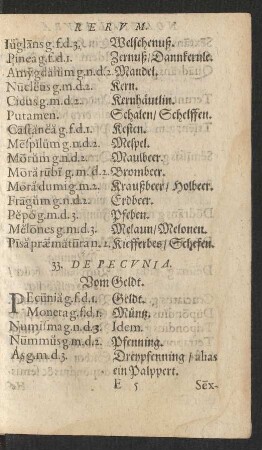 RERVM.
Iūglāns g.f.d.3. Welschenuß.
Pinea g.f.d.1. Zernuß/Dannkernle.
Amȳgdalum g.n.d.2. Mandel.
Nūclēus g.m.d.2. Kern.
g.m.d.2. Kernhäutlin.
Putamen. Schalen/Schelffen.
Castanea g.f.d.1. Kesten.
Mēspilŭm g.n.d.2. Mespel.
Mōrŭm g.n.d.2. Maulbeer.
Mōrā rŭbī g.m.d.2. Brombeer.
Morā dumi g.m.d.2. Kraußbeer/Holbeer.
Frāgŭm g.n.d.2. Erdbeer.
Pĕpō g.m.d.3. Pfeben.
Mēlōnes g.m.d.3. Melaun/Melonen.
Pīsā præmātūra n.2. Kiefferbes/Schefen.
33. DE PECVNIA.
Vom Geldt.
PEcūniă g.f.d.1. Geldt.
Moneta g.f.d.1. Müntz.
Numisma g.n.d.3. Idem.
Nūmmŭs g.m.d.2. Pfenning.
Ās g.m.d.3. Dreypfenning/alias
ein Palppert.
E 5 Sēx-